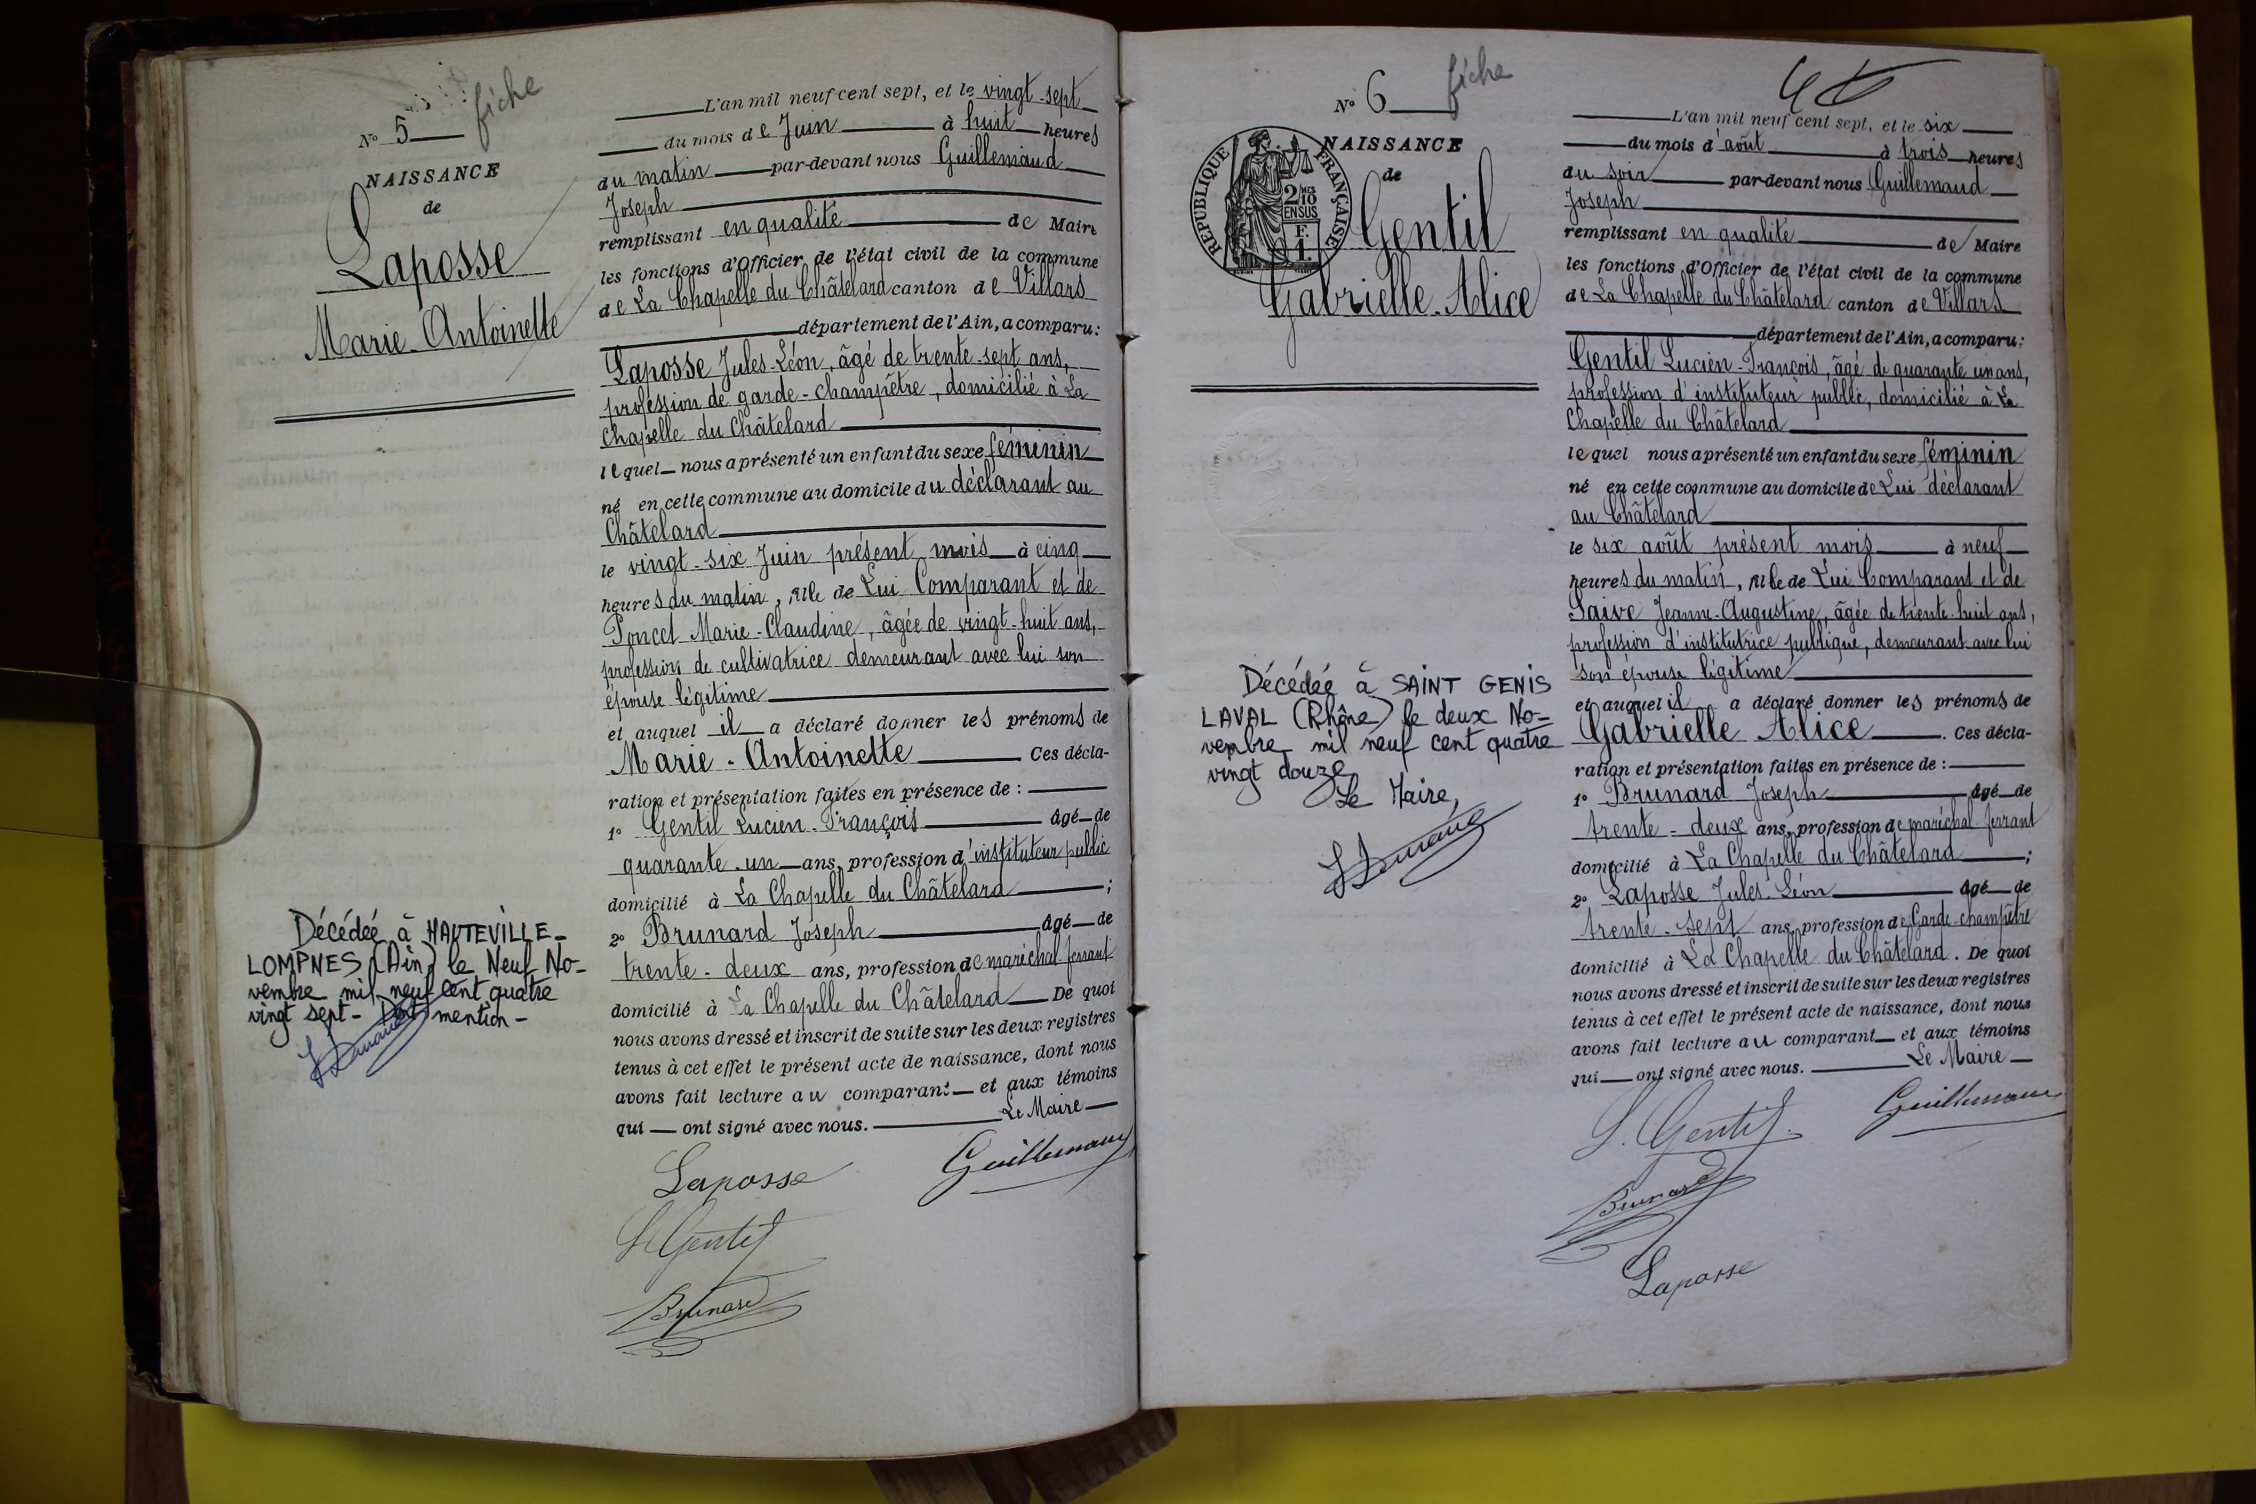 N° 5
fiche
NAISSANCE
de
Laposse
Marie-Antoinette
L'an mil neuf cent sept, et le vingt-sept
du mois de Juin à huit heures
du matin par-devant nous Guillemaud
Joseph
remplissant en qualité de Maire
les fonctions d'Officier de l'état civil de la commune
de La Chapelle du Châtelard canton de Villars
département de l'Ain, a comparu:
Laposse Jules-Léon, âgé de trente-sept ans,
profession de garde-champêtre, domicilié à La
Chapelle du Châtelard
lequel nous a présenté un enfant du sexe féminin
né en cette commune au domicile du déclarant au
Châtelard
le vingt-six Juin présent mois à cinq
heures du matin, fille de Lui Comparant et de
Poncet Marie-Claudine, âgée de vingt-huit ans,
profession de cultivatrice demeurant avec lui son
épouse légitime
et auquel il a déclaré donner les prénoms de
Marie-Antoinette Ces décla-
ration et présentation faites en présence de :
1° Gentil Lucien-François âgé de
quarante-un ans, profession d'instituteur public
domicilié à La Chapelle du Châtelard ;
2° Brunard Joseph âgé de
trente-deux ans, profession de maréchal ferrant
domicilié à La Chapelle du Châtelard De quoi
nous avons dressé et inscrit de suite sur les deux registres
tenus à cet effet le présent acte de naissance, dont nous
avons fait lecture au comparant et aux témoins
qui ont signé avec nous. Le Maire
Laposse Guillemaud
L Gentil
Brunard
Décédée à HAUTEVILLE-
LOMPNES (Ain) le Neuf No-
vembre mil neuf cent quatre
vingt sept - Dont mention -
N° 6
fiche
NAISSANCE
de
RÉPUBLIQUE FRANÇAISE
2/10 EN SUS
F. 1.
Gentil
Gabrielle-Alice
L'an mil neuf cent sept, et le six
du mois d'août à trois heures
du soir par-devant nous Guillemaud
Joseph
remplissant en qualité de Maire
les fonctions d'Officier de l'état civil de la commune
de La Chapelle du Châtelard canton de Villars
département de l'Ain, a comparu:
Gentil Lucien-François, âgé de quarante un ans,
profession d'instituteur public, domicilié à La
Chapelle du Châtelard
lequel nous a présenté un enfant du sexe féminin
né en cette commune au domicile de Lui déclarant
au Châtelard
le six août présent mois à neuf
heures du matin, fille de Lui Comparant et de
Saive Jeanne-Augustine, âgée de trente-huit ans,
profession d'institutrice publique, demeurant avec lui
son épouse légitime
et auquel il a déclaré donner les prénoms de
Gabrielle Alice. Ces décla-
ration et présentation faites en présence de :
1° Brunard Joseph âgé de
trente-deux ans, profession de maréchal ferrant
domicilié à La Chapelle du Châtelard ;
2° Laposse Jules-Léon âgé de
trente-sept ans, profession de Garde-champêtre
domicilié à La Chapelle du Châtelard. De quoi
nous avons dressé et inscrit de suite sur les deux registres
tenus à cet effet le présent acte de naissance, dont nous
avons fait lecture au comparant et aux témoins
qui ont signé avec nous. Le Maire
L. Gentil Guillemaud
Brunard
Laposse
Décédée à SAINT GENIS
LAVAL (Rhône) le deux No-
vembre mil neuf cent quatre
vingt douze
Le Maire,